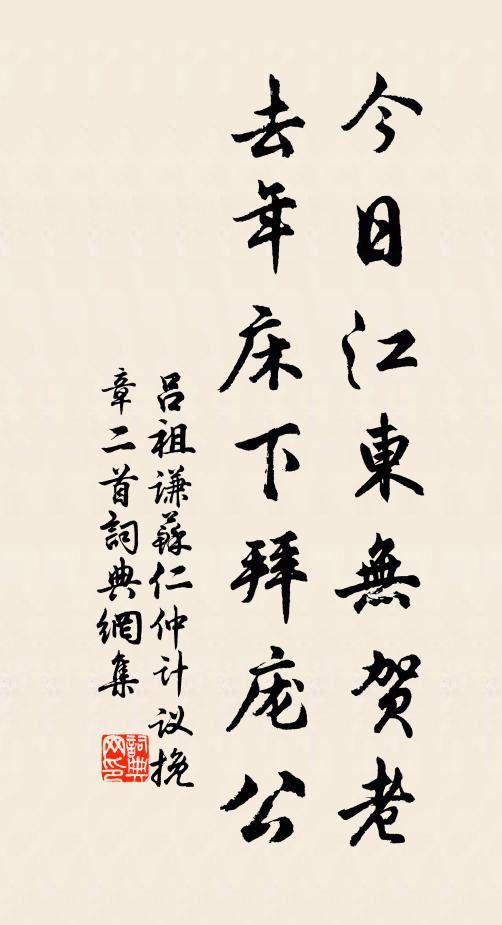 今日江東無贺老
去年床下拜庞公
吕祖谦蘇仁仲计议挽
章二首詞典網集
詞典
网印